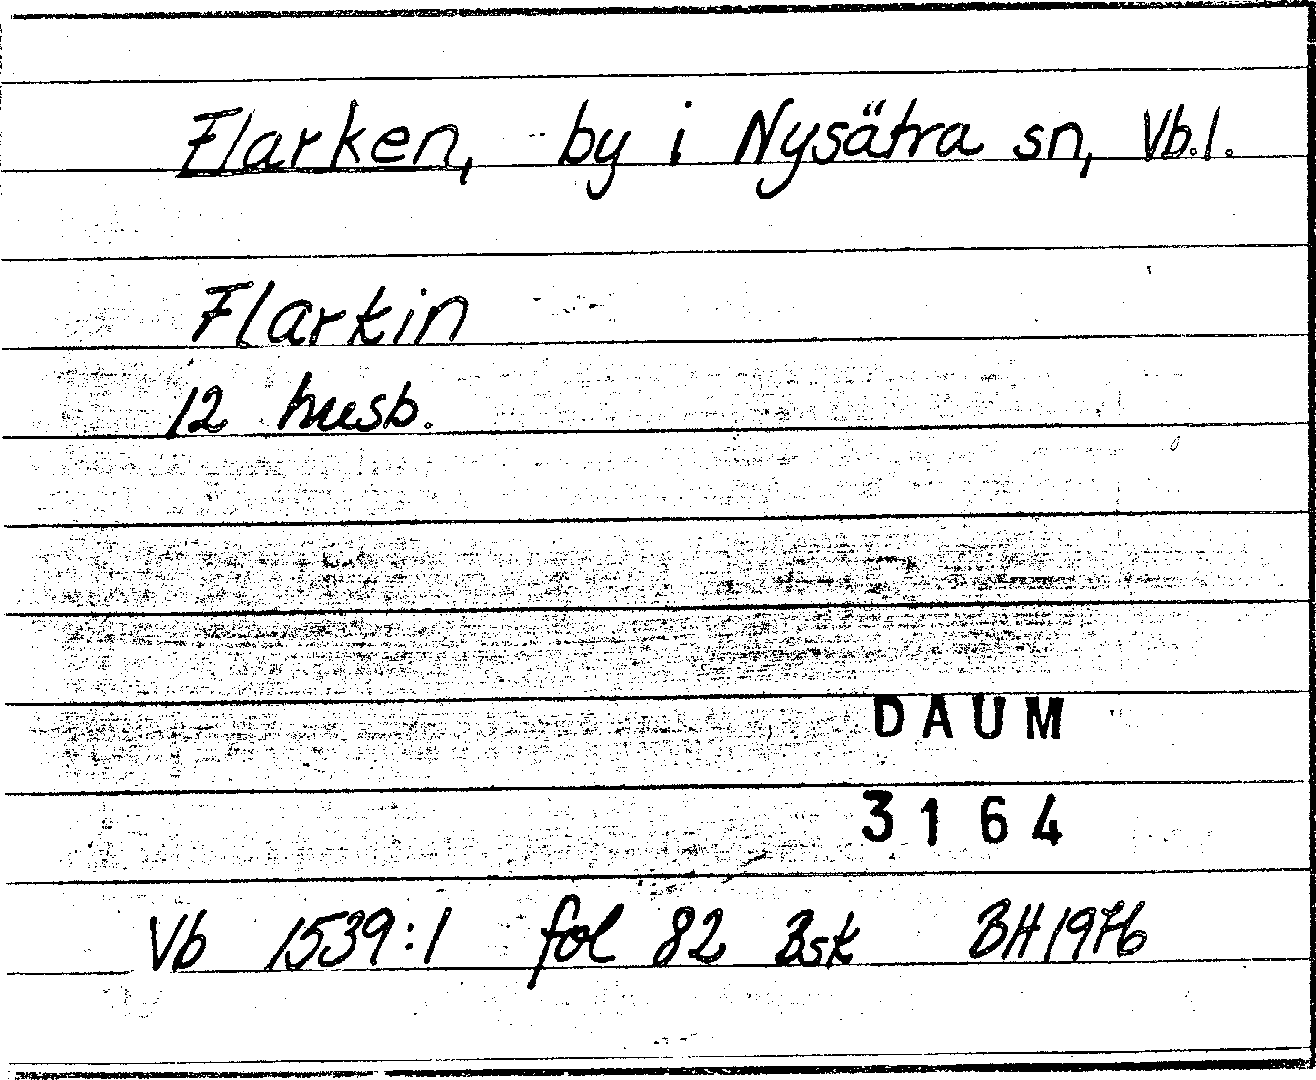 Flarken, by i Nysätra sn, Vb.l.
Flarkin
12 husb.
DAUM
3164
Vb 1539:1 fol 82 Bsk BH1976